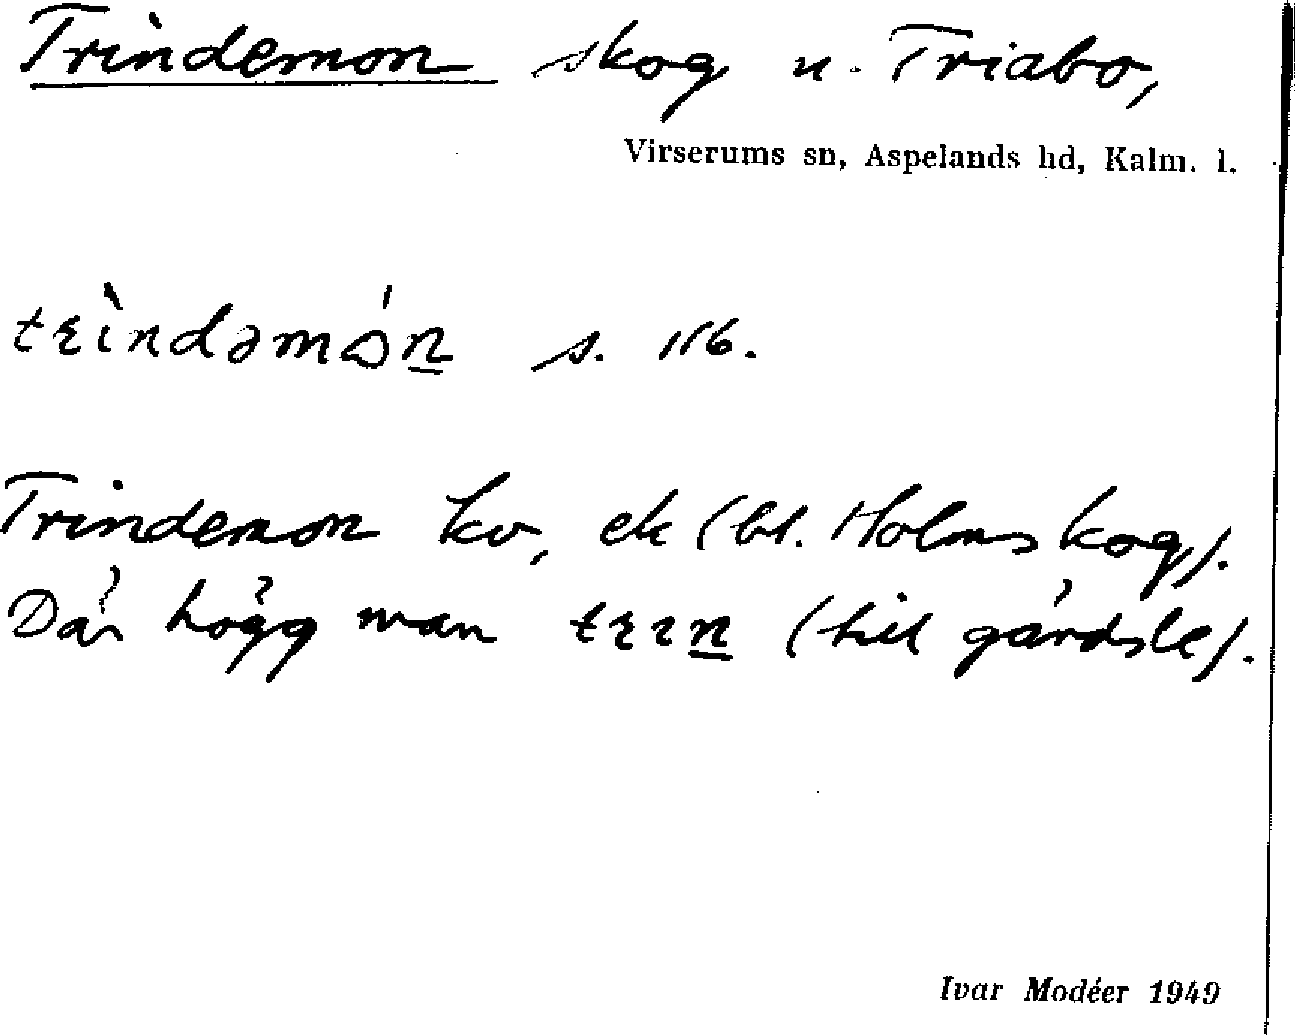 Trindemon skog u. Triabo,
Virserums sn, Aspelands hd, Kalm. l.
trìndəmón s. 116.
Trindemon kv, ek (bl. Holmskog).
Där högg man trın (till gärdsle).
Ivar Modéer 1949